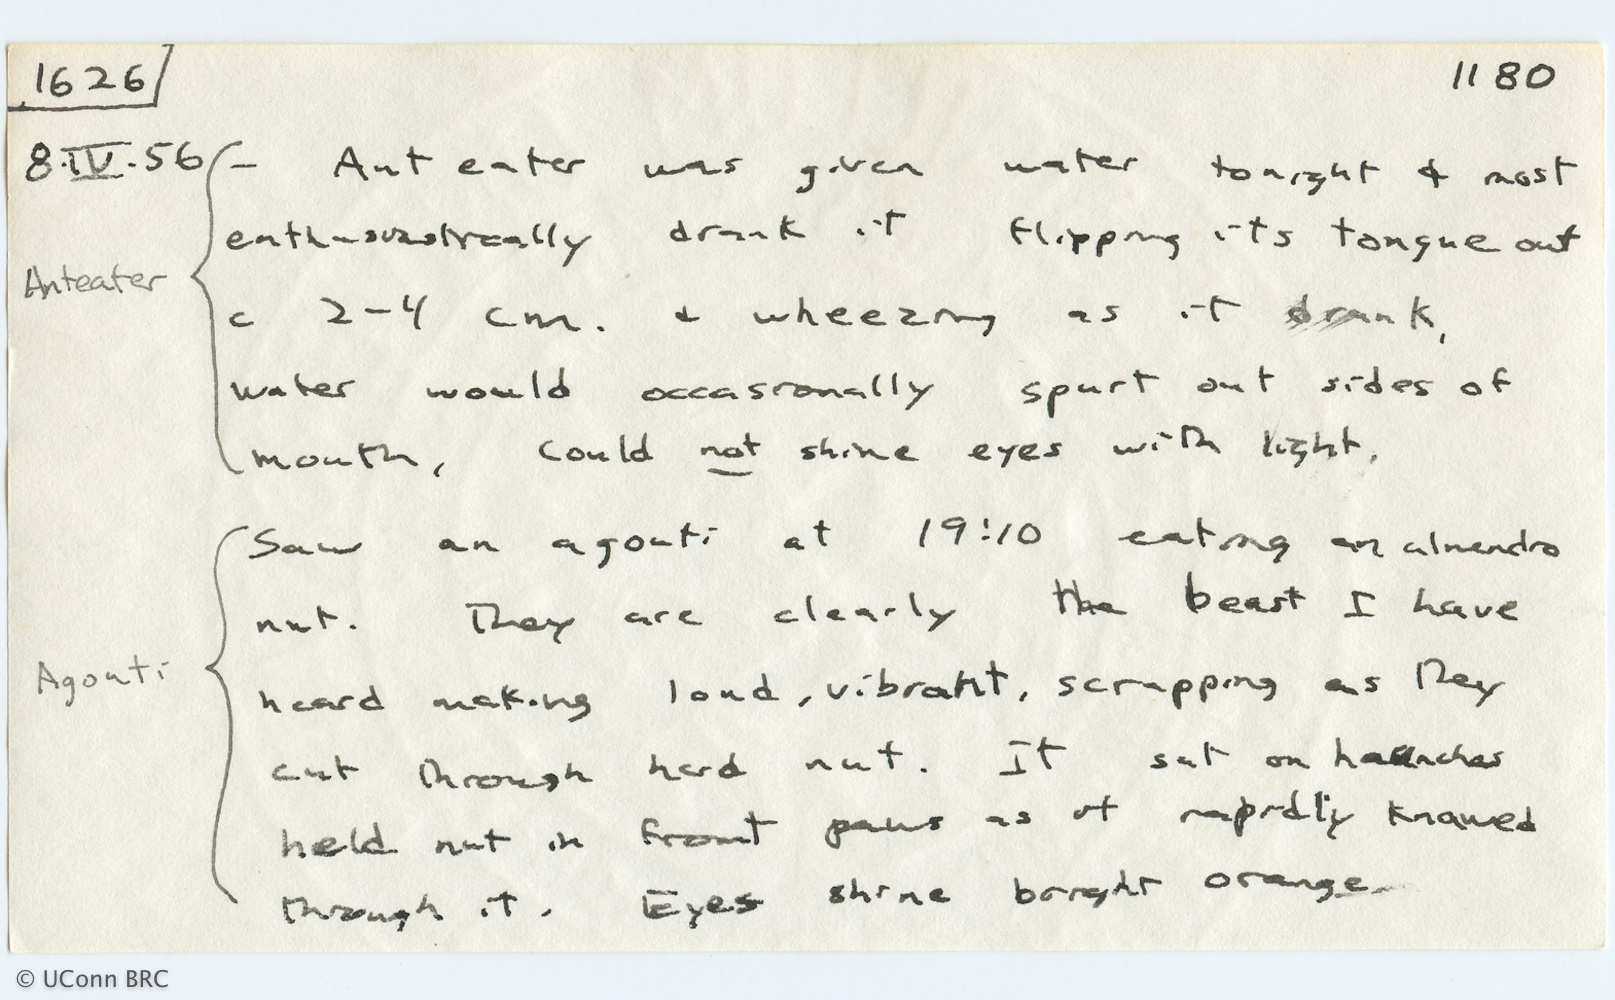 1626
1180
8.IV.56 - Ant eater was given water tonight & most
enthusiastically drank it flipping its tongue out
Anteater
c 2-4 cm. & wheezing as it drank,
water would occasionally spurt out sides of
mouth, could not shine eyes with light.
Saw an agouti at 19:10 eating an almendro
nut. They are clearly the beast I have
Agouti
heard making loud, vibrant, scrapping as they
cut through hard nut. It sat on haunches
held nut in front paws as it rapidly knawed
through it. Eyes shine bright orange
© UConn BRC